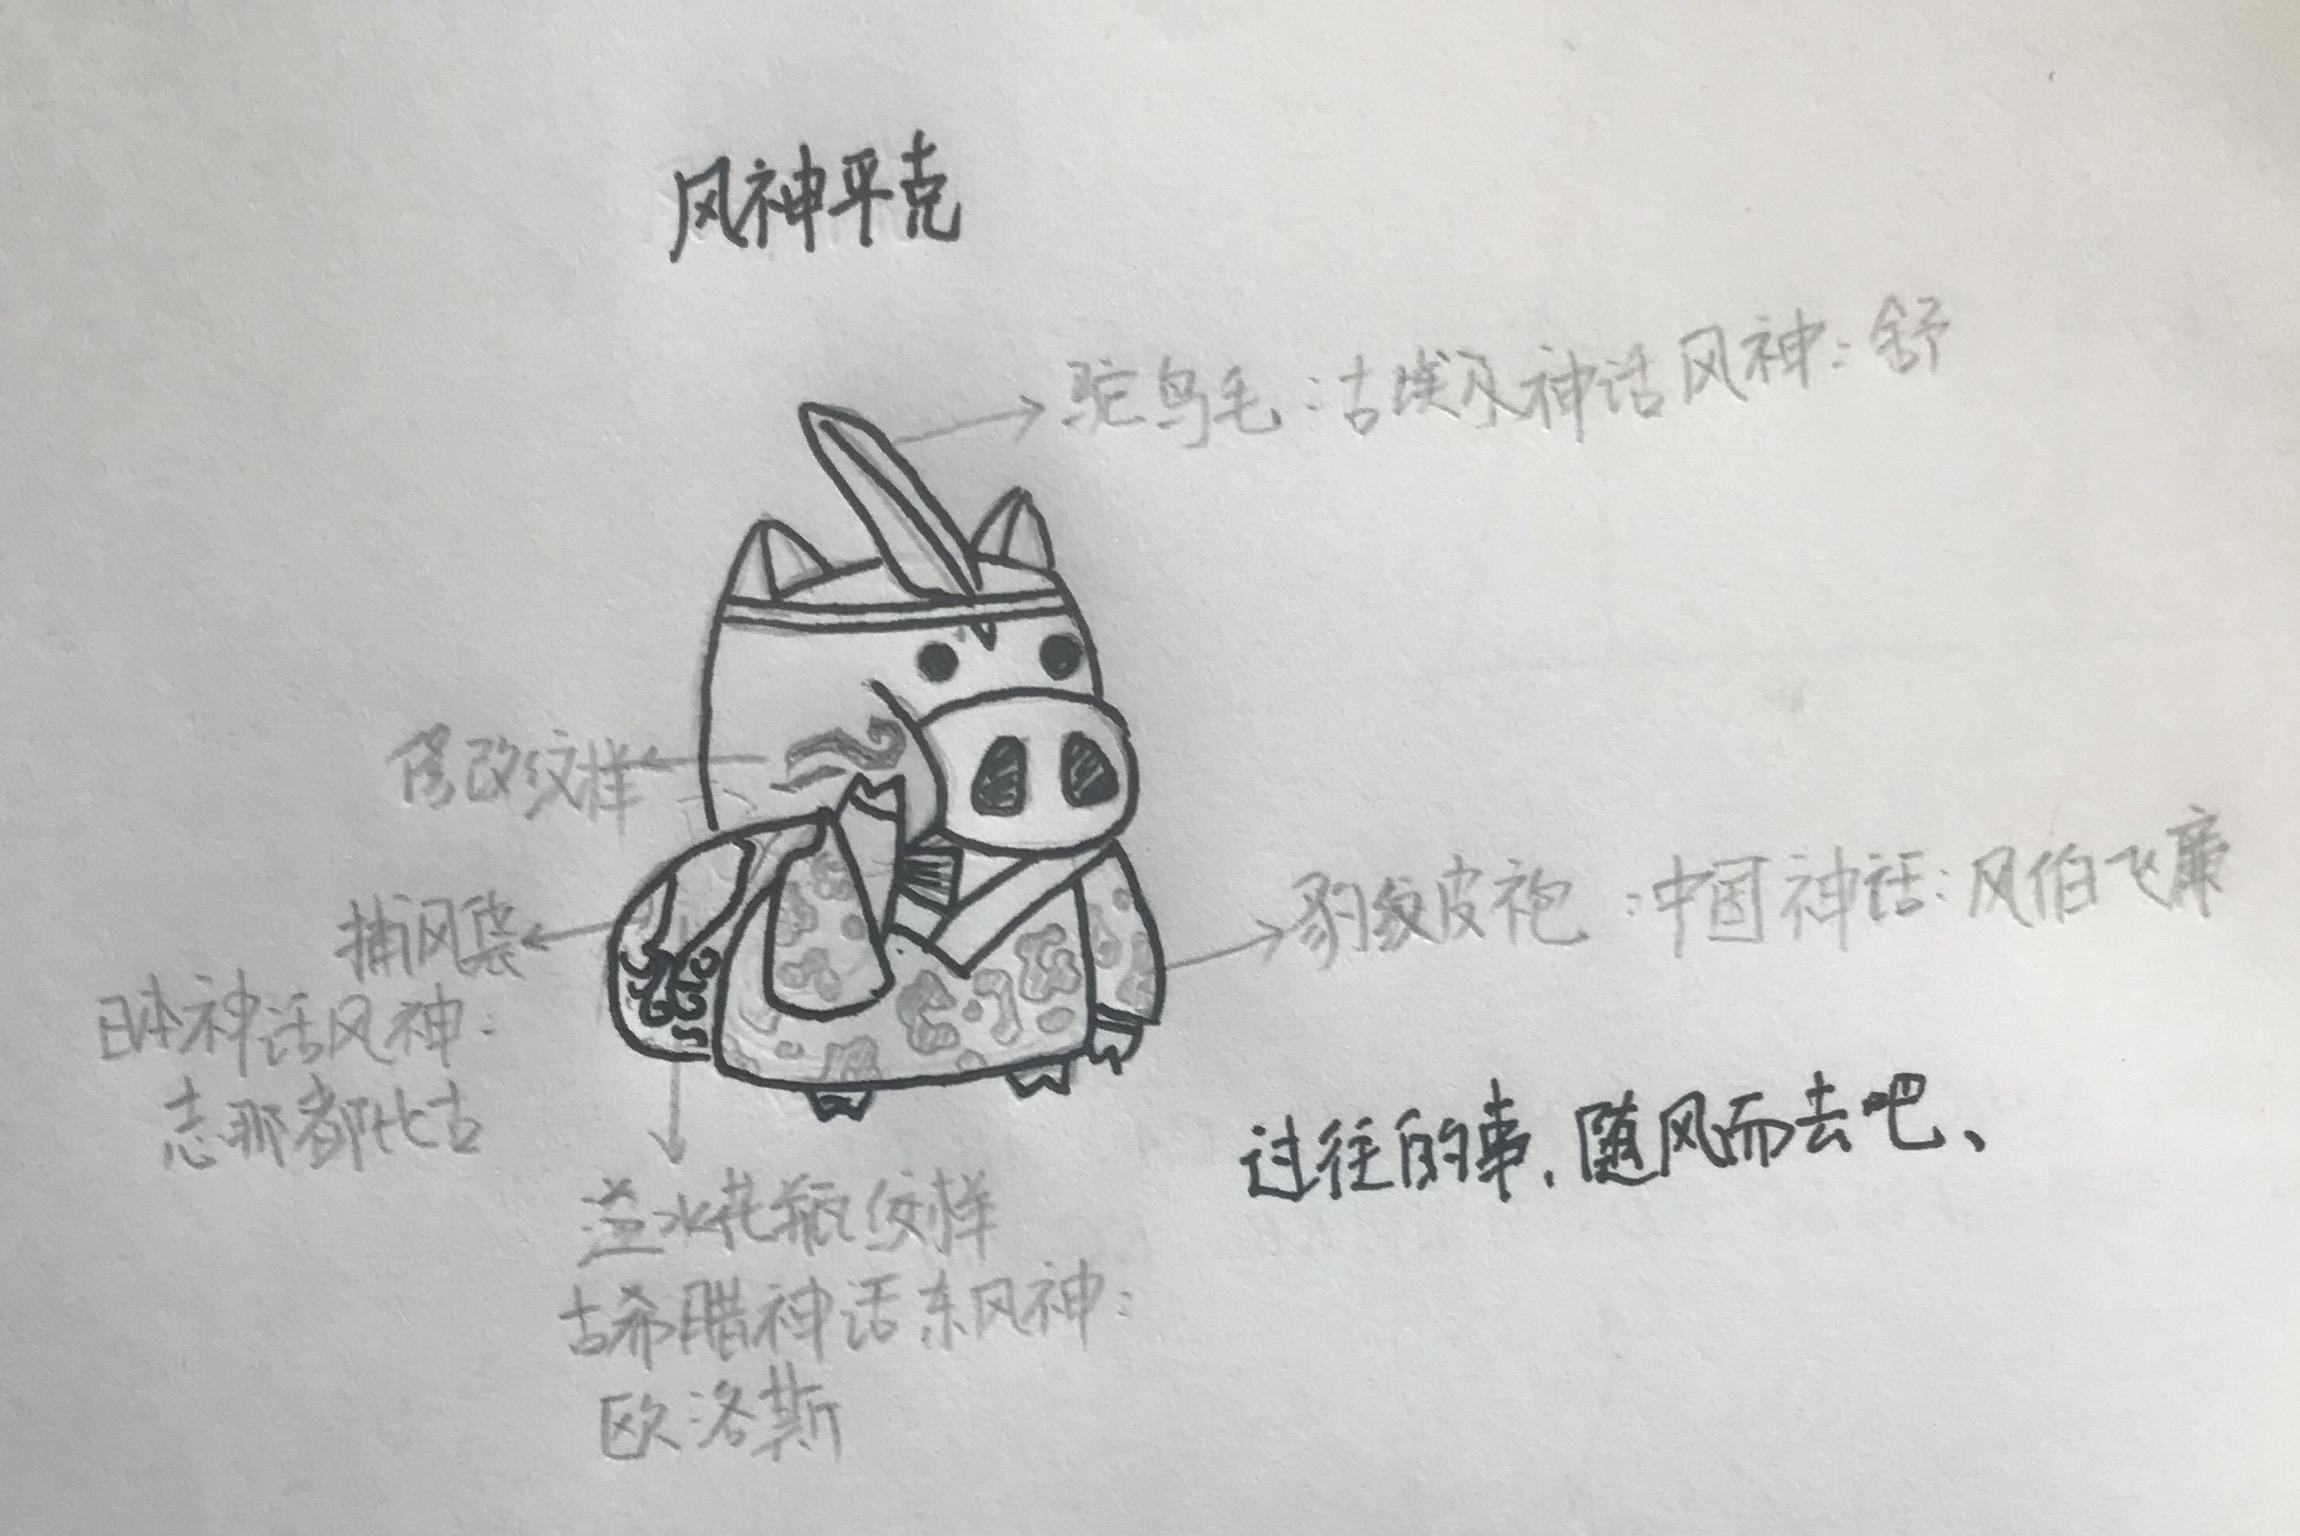 风神平克
驼鸟毛：古埃及神话风神：舒
修改纹样
捕风袋
日本神话风神：
志那都比古
豹纹皮袍：中国神话：风伯飞廉
过往的事、随风而去吧、
溢水花瓶纹样
古希腊神话东风神：
欧洛斯